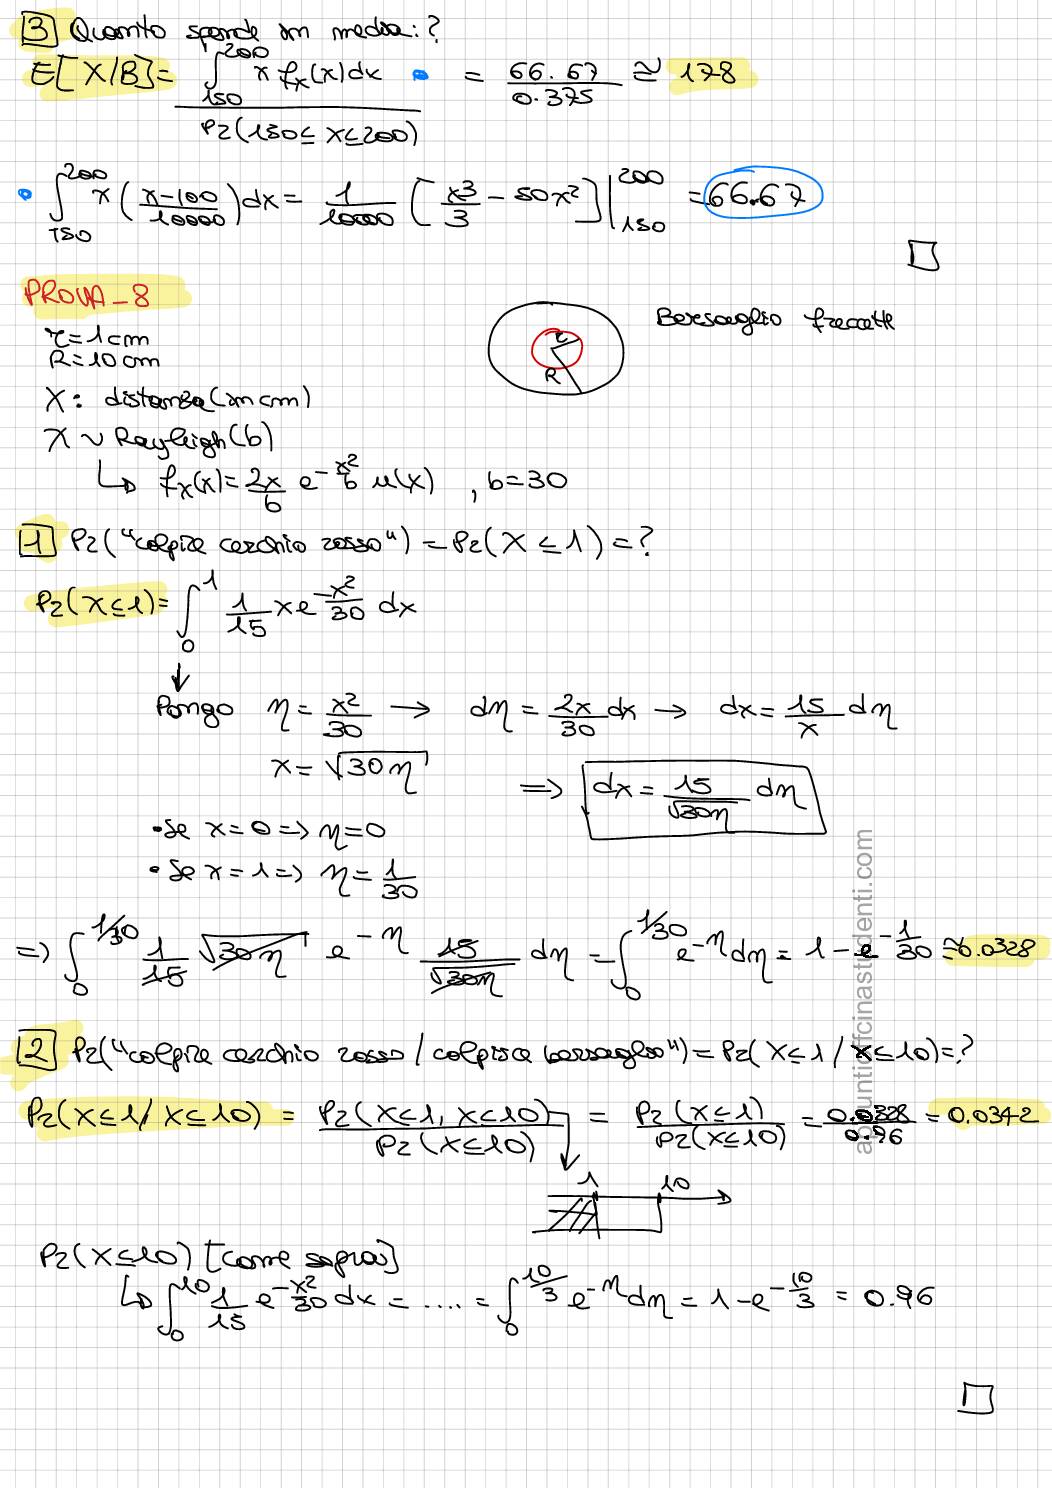 3 Quanto spende in media:?
E[X/B] = ∫_{150}^{200} x f_X(x)dx • / Pr(150 ≤ X ≤ 200) = 66.67 / 0.375 ≅ 178
• ∫_{150}^{200} x (x-100 / 10000) dx = 1/10000 [x³/3 - 50x²] |_{150}^{200} = 66.67
PROVA_8
r = 1cm
R = 10cm
r
R
Bersaglio freccette
X: distanza (in cm)
X ~ Rayleigh(b)
↳ f_X(x) = 2x/b e^{-x²/b} u(x) , b = 30
1 Pr("colpire cerchio rosso") = Pr(X ≤ 1) = ?
Pr(X ≤ 1) = ∫_0^1 1/15 x e^{-x²/30} dx
↓
Pongo η = x²/30 → dη = 2x/30 dx → dx = 15/x dη
x = √30η ⇒ dx = 15/√30η dη
• Se x = 0 => η = 0
• Se x = 1 => η = 1/30
=> ∫_0^{1/30} 1/15 √30η e^{-η} 15/√30η dη = ∫_0^{1/30} e^{-η} dη = 1 - e^{-1/30} ≅ 0.0328
2 Pr("colpire cerchio rosso / colpisce bersaglio") = Pr(X ≤ 1 / X ≤ 10) = ?
Pr(X ≤ 1 / X ≤ 10) = Pr(X ≤ 1, X ≤ 10) / Pr(X ≤ 10) = Pr(X ≤ 1) / Pr(X ≤ 10) = 0.0328 / 0.96 = 0.0342
1 10
Pr(X ≤ 10) [come sopra]
↳ ∫_0^{10} 1/15 e^{-x²/30} dx = .... = ∫_0^{10/3} e^{-η} dη = 1 - e^{-10/3} = 0.96
appuntiofficinastudenti.com